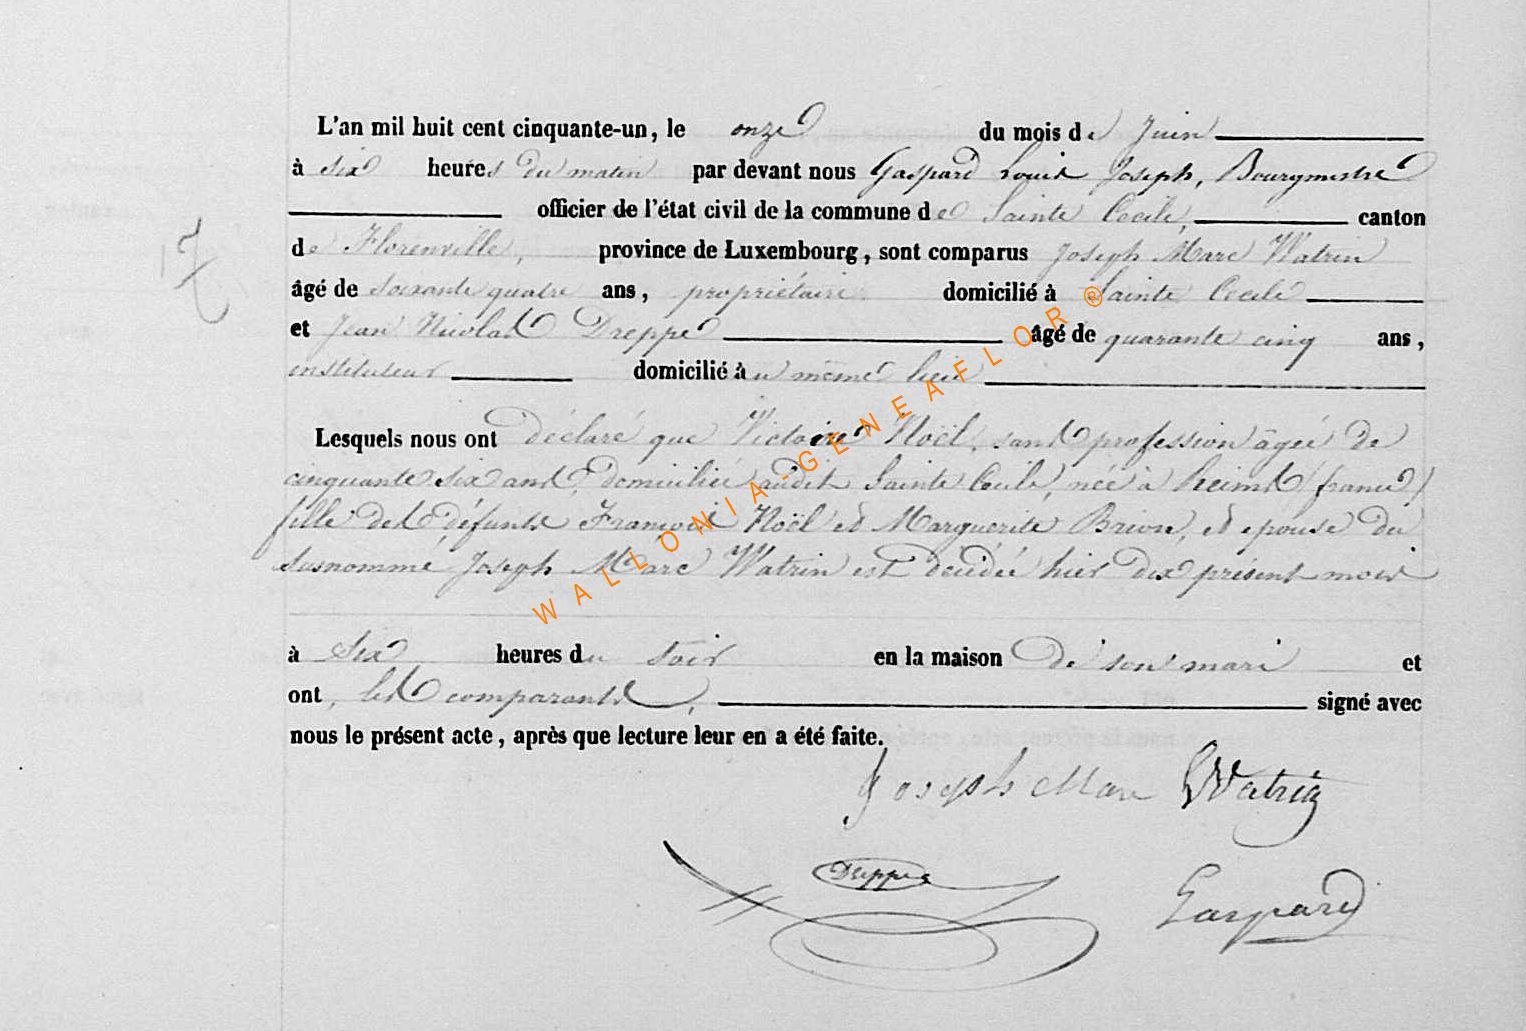 L'an mil huit cent cinquante-un, le onze du mois de Juin
à six heures du matin par devant nous Gaspard Louis Joseph, Bourgmestre
officier de l'état civil de la commune de Sainte Cecile, canton
de Florenville, province de Luxembourg, sont comparus Joseph Marc Watrin
âgé de soixante quatre ans, propriétaire domicilié à Sainte Cecile
et Jean Nicolas Dreppe âgé de quarante cinq ans,
instituteur domicilié au même lieu
Lesquels nous ont déclaré que Victoire Noël, sans profession âgée de
cinquante six ans, domiciliée audit Sainte Cecile, née à Reims (france)
fille des défunts François Noël et Marguerite Brion, et epouse du
susnommé Joseph Marc Watrin est décédée hier dix présent mois
à Six heures du soir en la maison de son mari et
ont, les comparants, signé avec
nous le présent acte, après que lecture leur en a été faite.
Joseph Marc Watrin
Dreppe
Gaspard
WALLONIA-GENEAFLOR®